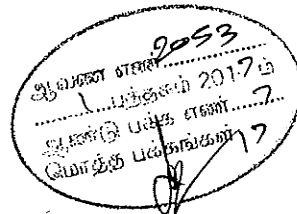 ஆவண எண் 2053
1 புத்தகம் 2017ம்
ஆண்டு பக்க எண் 7
மொத்த பக்கங்கள் 17